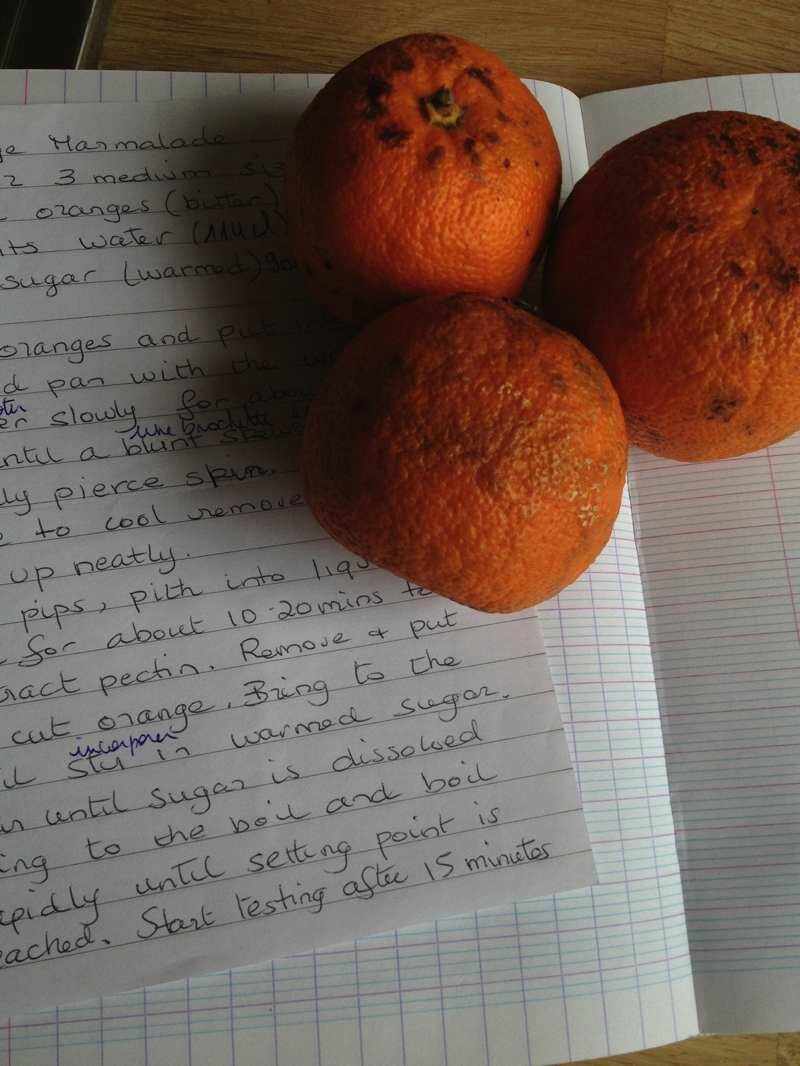 ge Marmalade
2 3 medium si
oranges (bitter)
ts water (1140)
sugar (warmed)
oranges and put
d pan with the
er slowly for abou
ntil a blunt
une brochette
ly pierce skin.
to cool remove
up neatly.
pips, pith into liqu
for about 10-20mins to
ract pectin. Remove & put
cut orange. Bring to the
incorporer
il stir in warmed sugar.
until sugar is dissolved
ing to the boil and boil
apidly until setting point is
eached. Start testing after 15 minutes